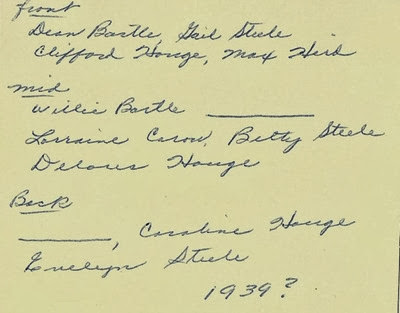 front
Dean Bartle, Gail Steele
Clifford Houge, Max Hird
mid
Willie Bartle ________
Lorraine Carow, Betty Steele
Delores Houge
Back
________, Caroline Houge
Evelyn Steele
1939?